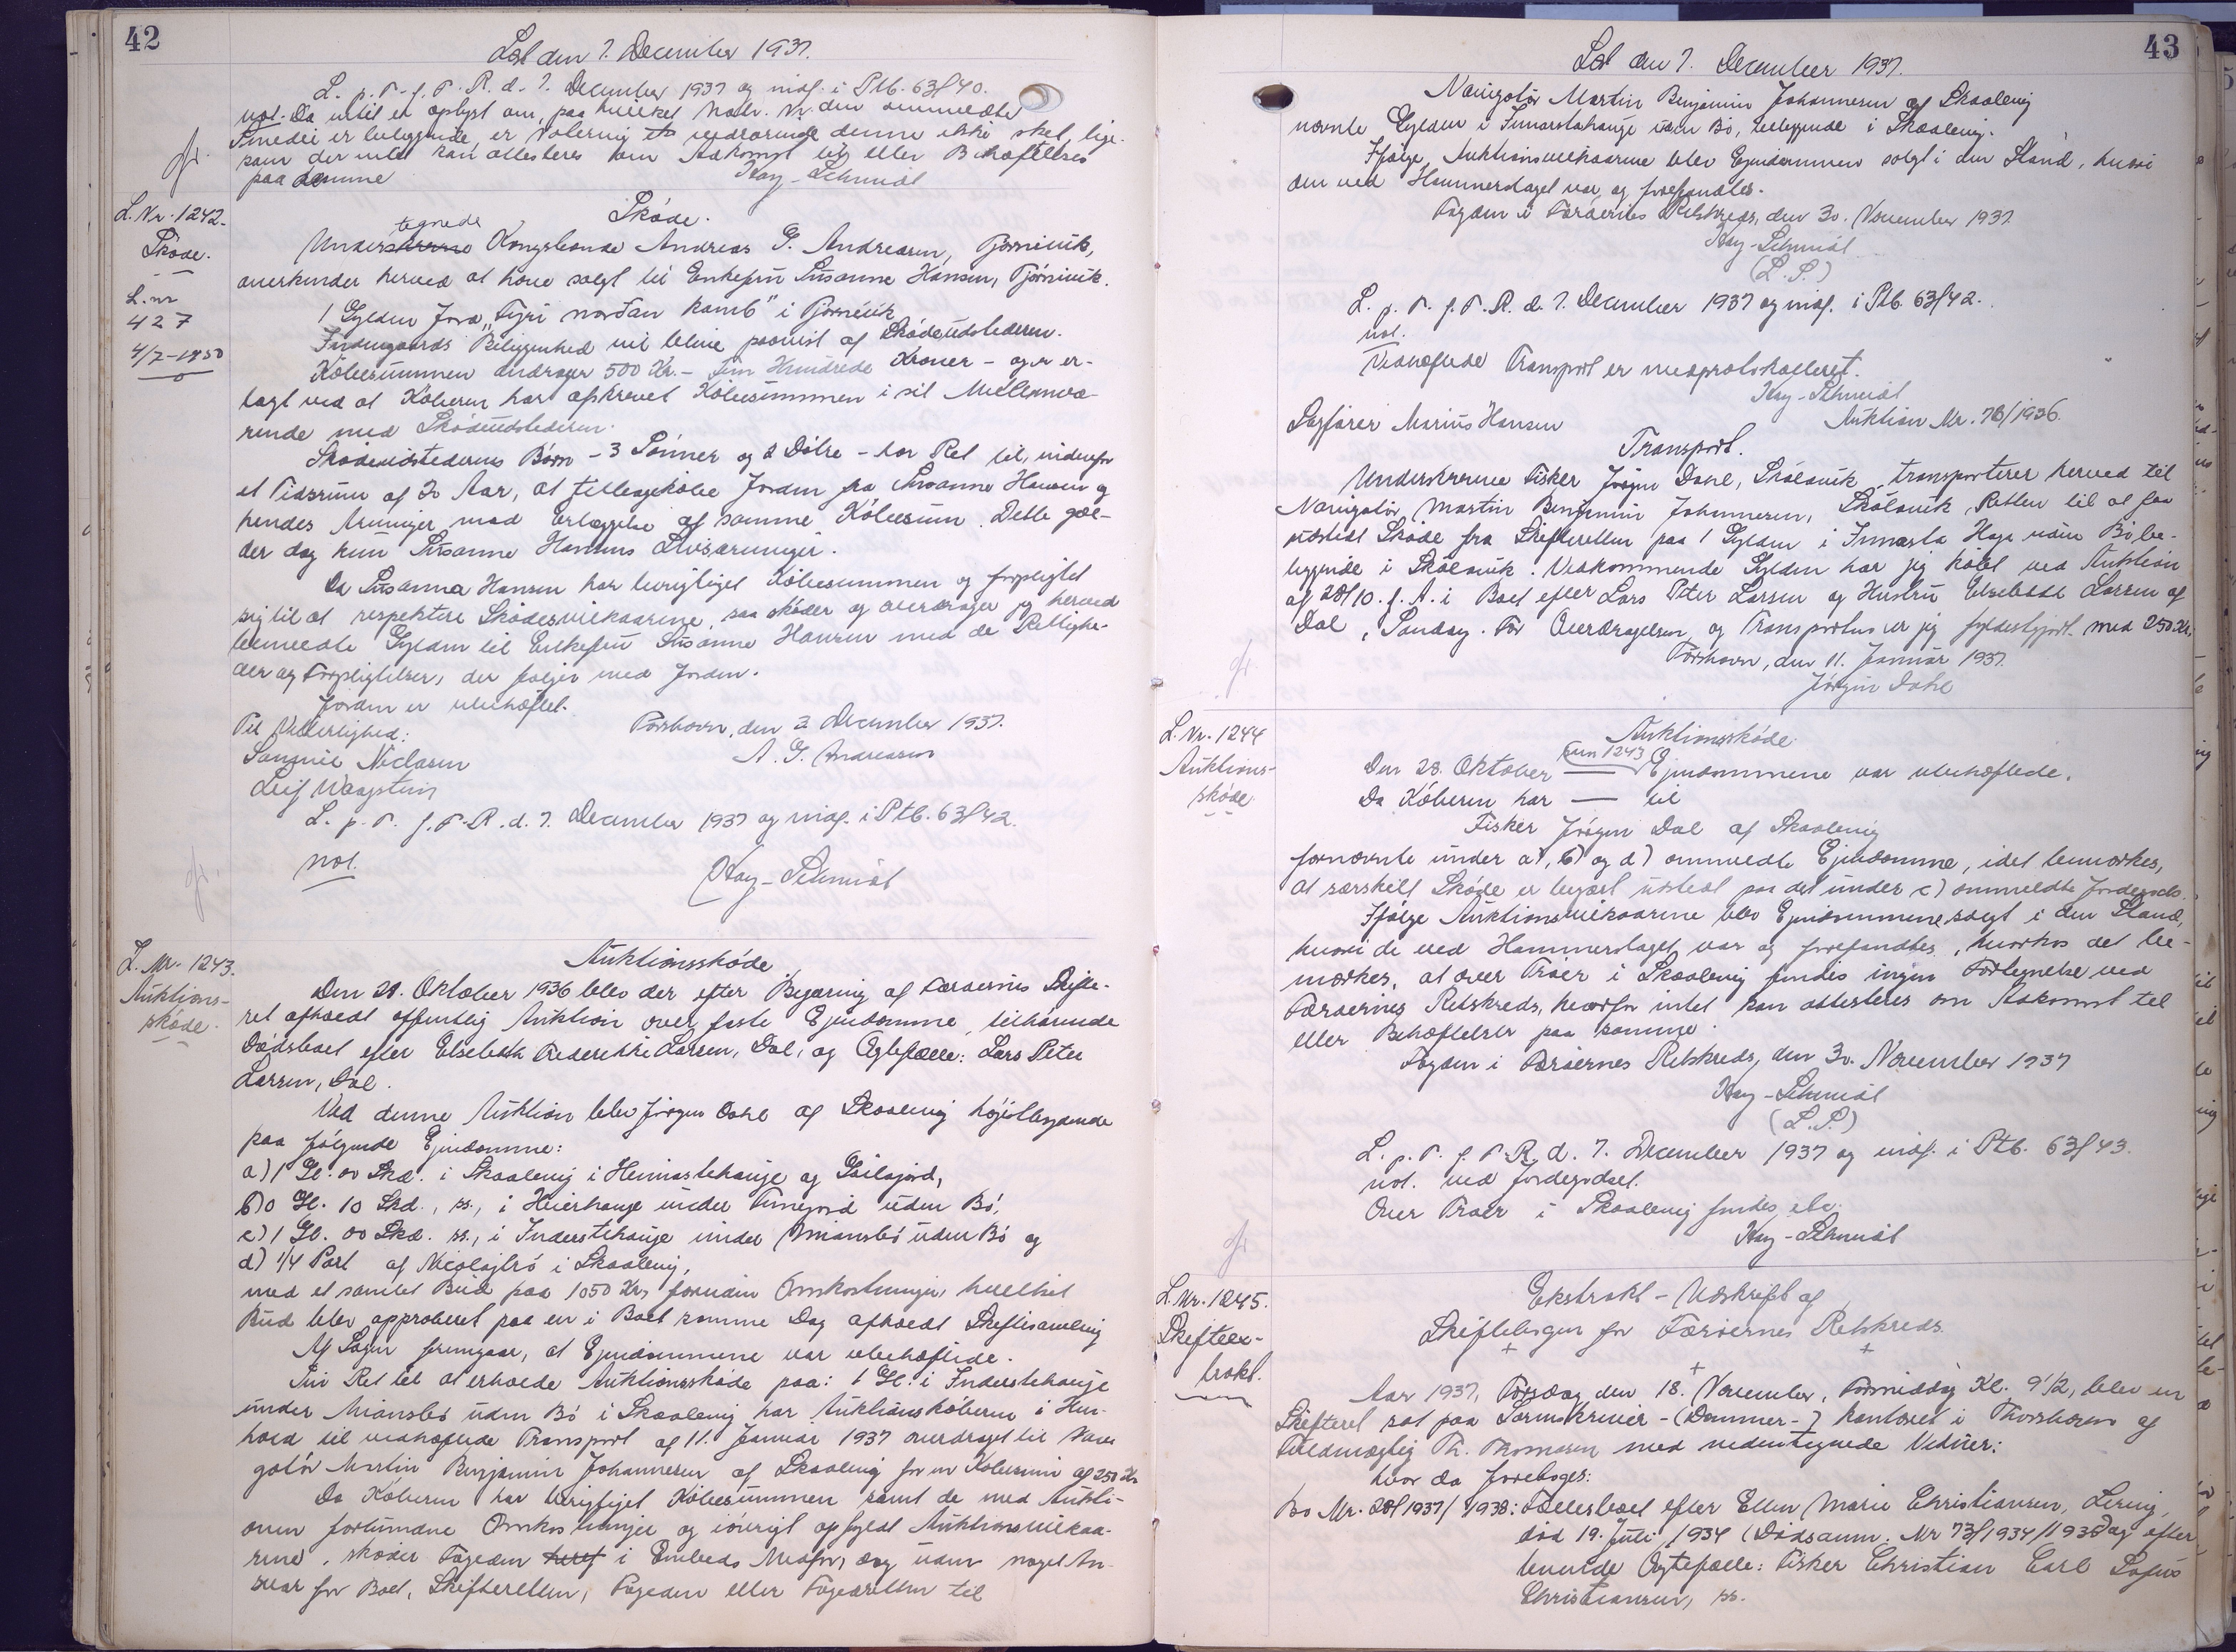 42
Læst den 7. December 1937.
L. p. T. f. F. R. d. 7. December 1937 og indf. i Ptb. 63f40.
not. Da intet er oplyst om, paa hvilket Matr. Nr. den ommeldte
Smedei er beliggende, er Notering vedrørende denne ikke sket, lige-
som der intet kan attesteres om Adkomst til eller Behæftelser
paa denne
Kay-Schmidt
L. Nr. 1242.
Skøde.
L.nr
427
4/7-1950
Skøde.
tegnede
Underskrevne Kongsbonde Andreas G. Andreasen, Tjørnivik,
anerkender herved at have solgt til Enkefru Susanne Hansen, Tjørnivik.
1 Gylden Jord "Fyri nordan kamb" i Tjørnivik
Indengaards Beliggenhed vil blive paavist af Skødeudstederen.
Købesummen andrager 500 Kr. - Fem Hundrede Kroner - og er er-
lagt ved at Køberen har afskrevet Købesummen i sit Mellemvæ-
rende med Skødeudstederen.
Skødeudstederens Børn - 3 Sønner og 2 Døtre - har Ret til, indenfor
et Tidsrum af 20 Aar, at tilbagekøbe Jorden fra Susanne Hansen og
hendes Arvinger mod Erlæggelse af samme Købesum. Dette gæl-
der dog kun Susanne Hansens Livsarvinger.
Da Susanna Hansen har berigtiget Købesummen og forpligtet
sig til at respektere Skødesvilkaarene, saa skøder og overdrager jeg herved
bemeldte Gylden til Enkefru Susanne Hansen med de Rettighe-
der og Forpligtelser, der følger med Jorden.
Jorden er ubehæftet.
Til Vitterlighed:
Tórshavn, den 2. December 1937.
Sammie Niclasen
A. G. Andreasen
Leif Waagstein
L. p. T. f. F. R. d. 7. December 1937 og indf. i Ptb. 63f42.
not.
Kay-Schmidt
L. Nr. 1243.
Auktions-
skøde.
Auktionsskøde
Den 28. Oktober 1936 blev der efter Begæring af Færøernes Skifte-
ret afholdt offentlig Auktion over faste Ejendomme, tilhørende
Dødsboet efter Elsebeth Frederikke Larsen, Dal, og Ægtefælle: Lars Peter
Larsen, Dal.
Ved denne Auktion blev Jørgen Dahl af Skaalevig højstbydende
paa følgende Ejendomme:
a) 1 Gl. 00 Skd. i Skaalevig i Heimastehauge og
b) 0 Gl. 10 Skd., ss., i Heierhauge under uden Bø,
c) 1 Gl. 00 Skd. ss., i Inderstehauge under Miansbø uden Bø og
d) 1/4 Part af i Skaalevig,
med et samlet Bud paa 1050 Kr, foruden Omkostninger, hvilket
Bud blev approberet paa en i Boet samme Dag afholdt Skiftesamling
Af Sagen fremgaar, at Ejendommene var ubehæftede.
Sin Ret til at erholde Auktionsskøde paa: 1 Gl. i Inderstehauge
under Miansbø uden Bø i Skaalevig har Auktionskøberen i Hen-
hold til vedhæftede Transport af 11. Januar 1937 overdraget til Navi-
gatør Martin Benjamin Johannesen af Skaalevig for en Købesum af 250 Kr.
Da Køberen har berigtiget Købesummen samt de med Aukti-
onen forbundne Omkostninger og iøvrigt opfyldt Auktionsvilkaa-
rene, skøder Fogeden i Embeds Medfør, dog uden noget An-
svar for Boet, Skifteretten, Fogeden eller Fogedretten til
43
Læst den 7. December 1937.
Navigatør Martin Benjamin Johannesen af Skaalevig
nævnte Gylden i Innarstahauge uden Bø, beliggende i Skaalevig.
Ifølge Auktionsvilkaarene blev Ejendommen solgt i den Stand, hvori
den ved Hammerslaget var og forefandtes.
Fogden i Færøernes Retskreds, den 30. November 1937.
Kay-Schmidt
(L. S.)
L. p. T. f. F. R. d. 7. December 1937 og indf. i Ptb. 63f42.
not.
Vedhæftede Transport er medprotokolleret.
Kay-Schmidt
Sagfører Marius Hansen
Auktion Nr. 76/1936.
Transport.
Underskrevne Fisker Jørgen Dahl, Skálavik transporterer herved til
Navigatør Martin Benjamin Johannesen, Skálavik, Retten til at faa
udstedt Skøde fra Skifteretten paa 1 Gylden i Innarsta Hage uden Bø, be-
liggende i Skálavik. Vedkommende Gylden har jeg købt ved Auktion
af 28/10. f. A. i Boet efter Lars Peter Larsen og Hustru Elsebeth Larsen af
Dal, Sandøy. For Overdragelsen og Transporten er jeg fyldestgjort med 250 Kr.
Tórshavn, den 11. Januar 1937.
Jørgen Dahl
L. Nr. 1244
Auktions-
skøde
Auktionsskøde
som 1243
Den 28. Oktober — Ejendommene var ubehæftede.
Da Køberen har — til
Fisker Jørgen Dal af Skaalevig
fornævnte under a), b) og d) ommeldte Ejendomme, idet bemærkes,
at særskilt Skøde er begært udstedt paa det under c) ommeldte Jordegods.
Ifølge Auktionsvilkaarene blev Ejendommene solgt i den Stand,
hvori de ved Hammerslaget var og forefandtes, hvorhos det be-
mærkes, at over Tråer i Skaalevig findes ingen Fortegnelse ved
Færøernes Retskreds, hvorfor intet kan attesteres om Adkomst til
eller Behæftelser paa samme.
Fogden i Færøernes Retskreds, den 30. November 1937
Kay-Schmidt
(L. S.)
L. p. T. f. F. R. d. 7. December 1937 og indf. i Ptb. 63f43.
not. ved Jordegodset.
Over Tråer i Skaalevig findes etc.
Kay-Schmidt
L. Nr. 1245.
Skifteex-
trakt.
Ekstrakt-Udskrift af
Skiftebogen for Færøernes Retskreds.
Aar 1937, Torsdag den 18. November, Formiddag Kl. 9 1/2, blev en
Skifteret sat paa Sorenskriver-(Dommer-) kontoret i Thorshavn af
Fuldmægtig Th. Thomasen med nedentegnede Vidner:
hvor da foretoges:
Bo Nr. 28f1937/1938: Fællesboet efter Ellen Marie Christiansen,
død 19. Juli 1934 (Dødsanm. Nr 73f1934/1935) og efter
levende Ægtefælle: Fisker Christian Carl Sofus
Christiansen, ss.